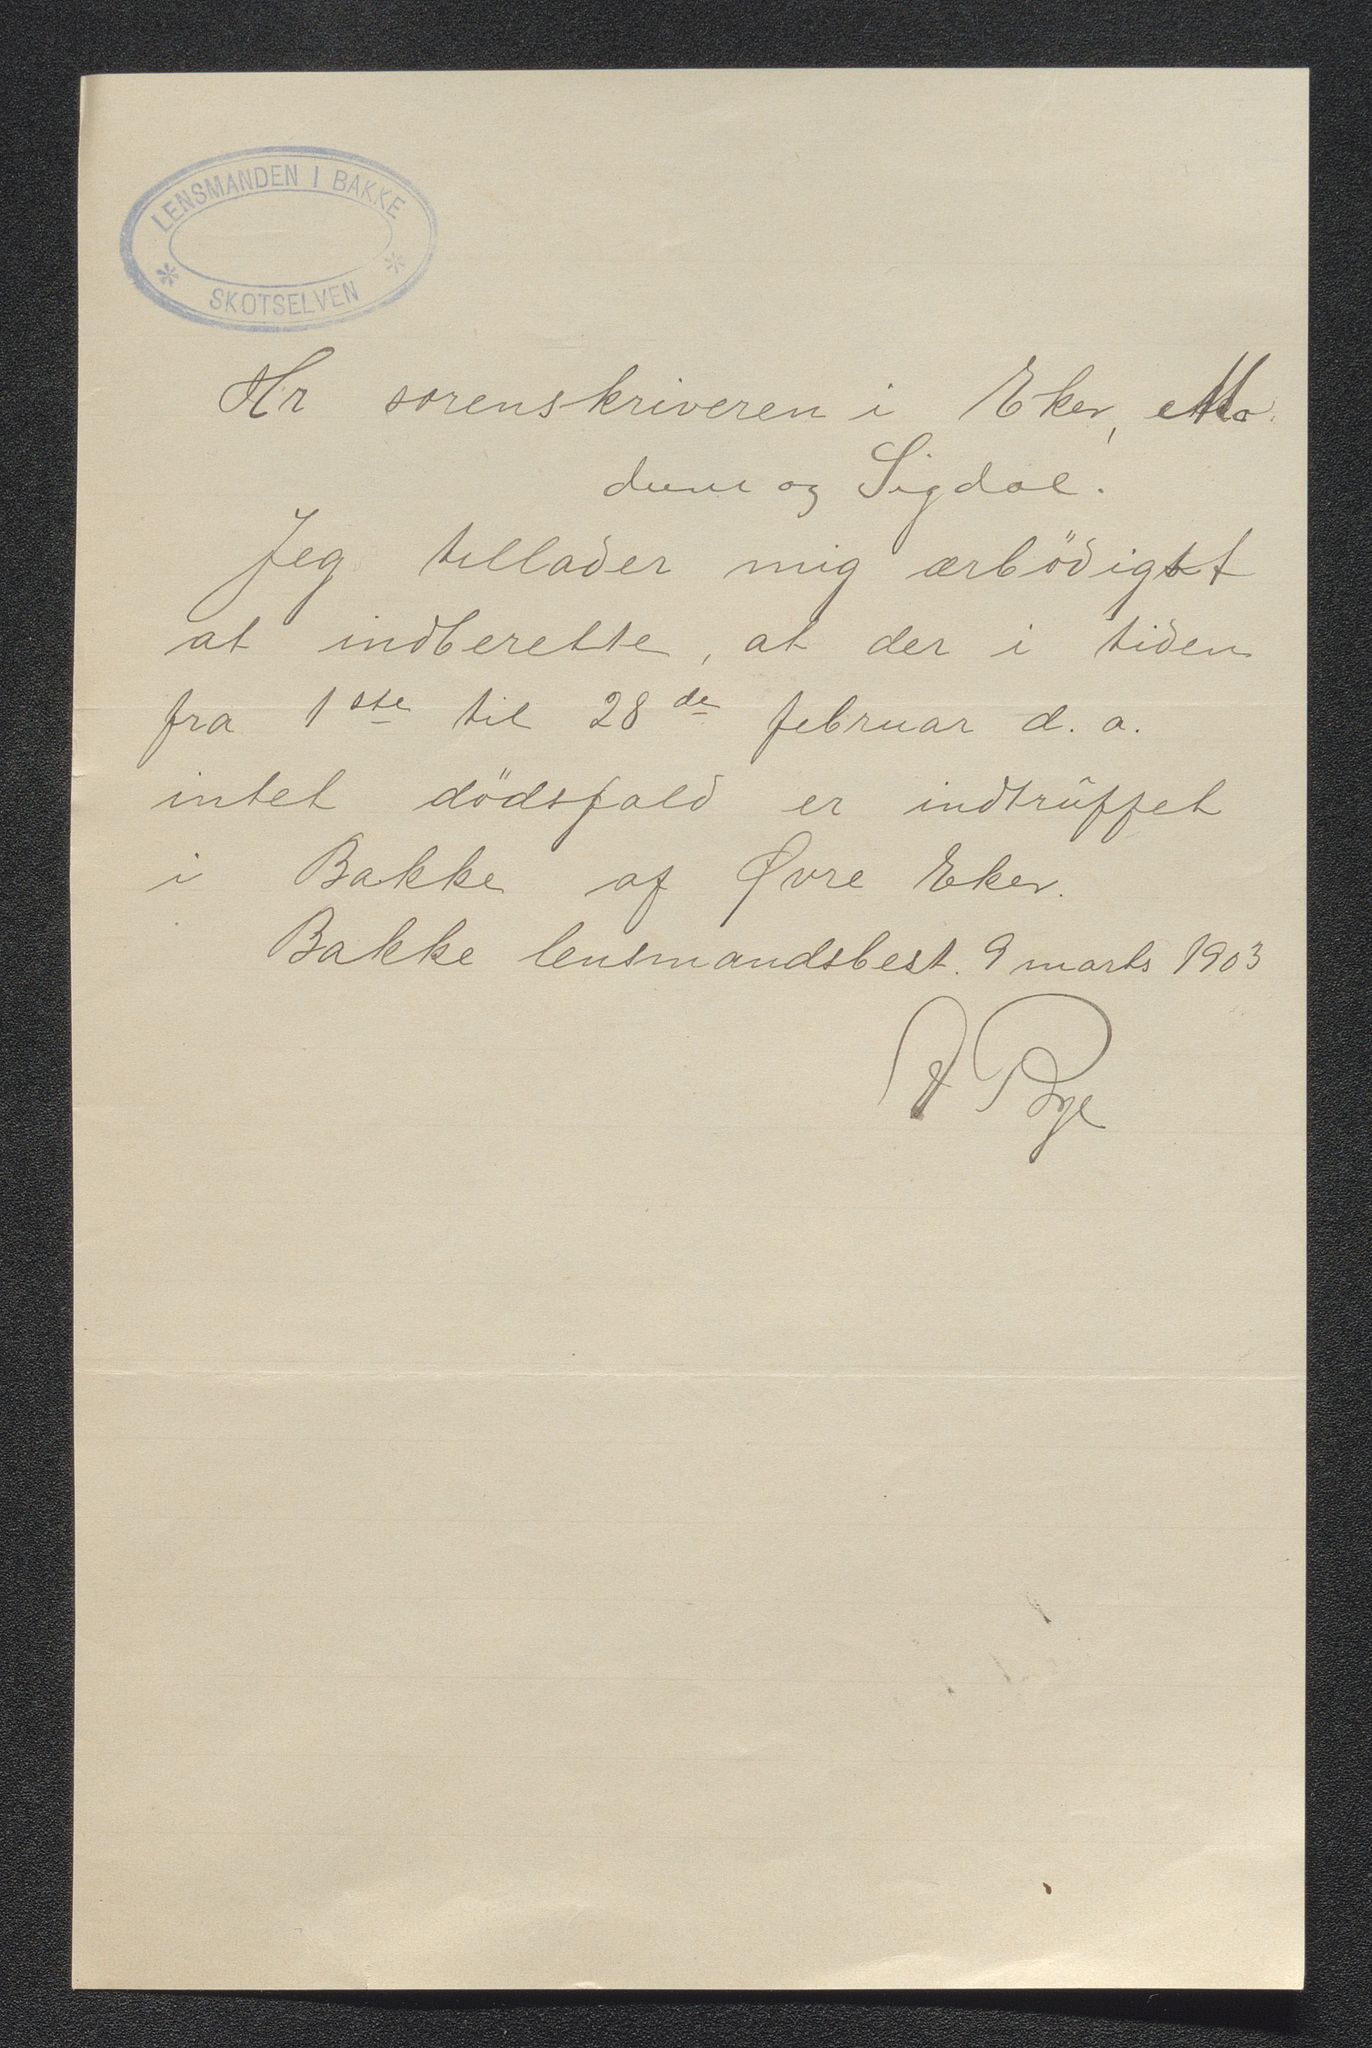 LENSMANDEN I BAKKE
* SKOTSELVEN *
Hr sorenskriveren i Eker, Mo
dum og Sigdal.
Jeg tillader mig ærbödigst
at indberette, at der i tiden
fra 1ste til 28de februar d. a.
intet dödsfald er indtruffet
i Bakke af Øvre Eker.
Bakke lensmandsbest. 9 marts 1903
A Bye